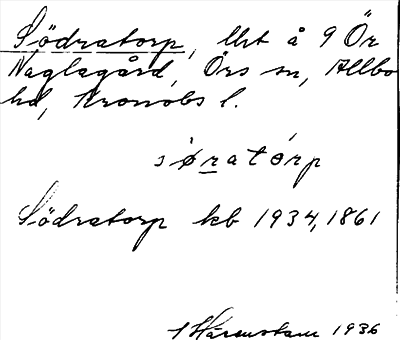 Södratorp, Urt å 9 Ör
Naglagård, Örs sn, Allbo
hd, Kronobs l.
sø̀ratórp
Södratorp kb 1934, 1861
1936